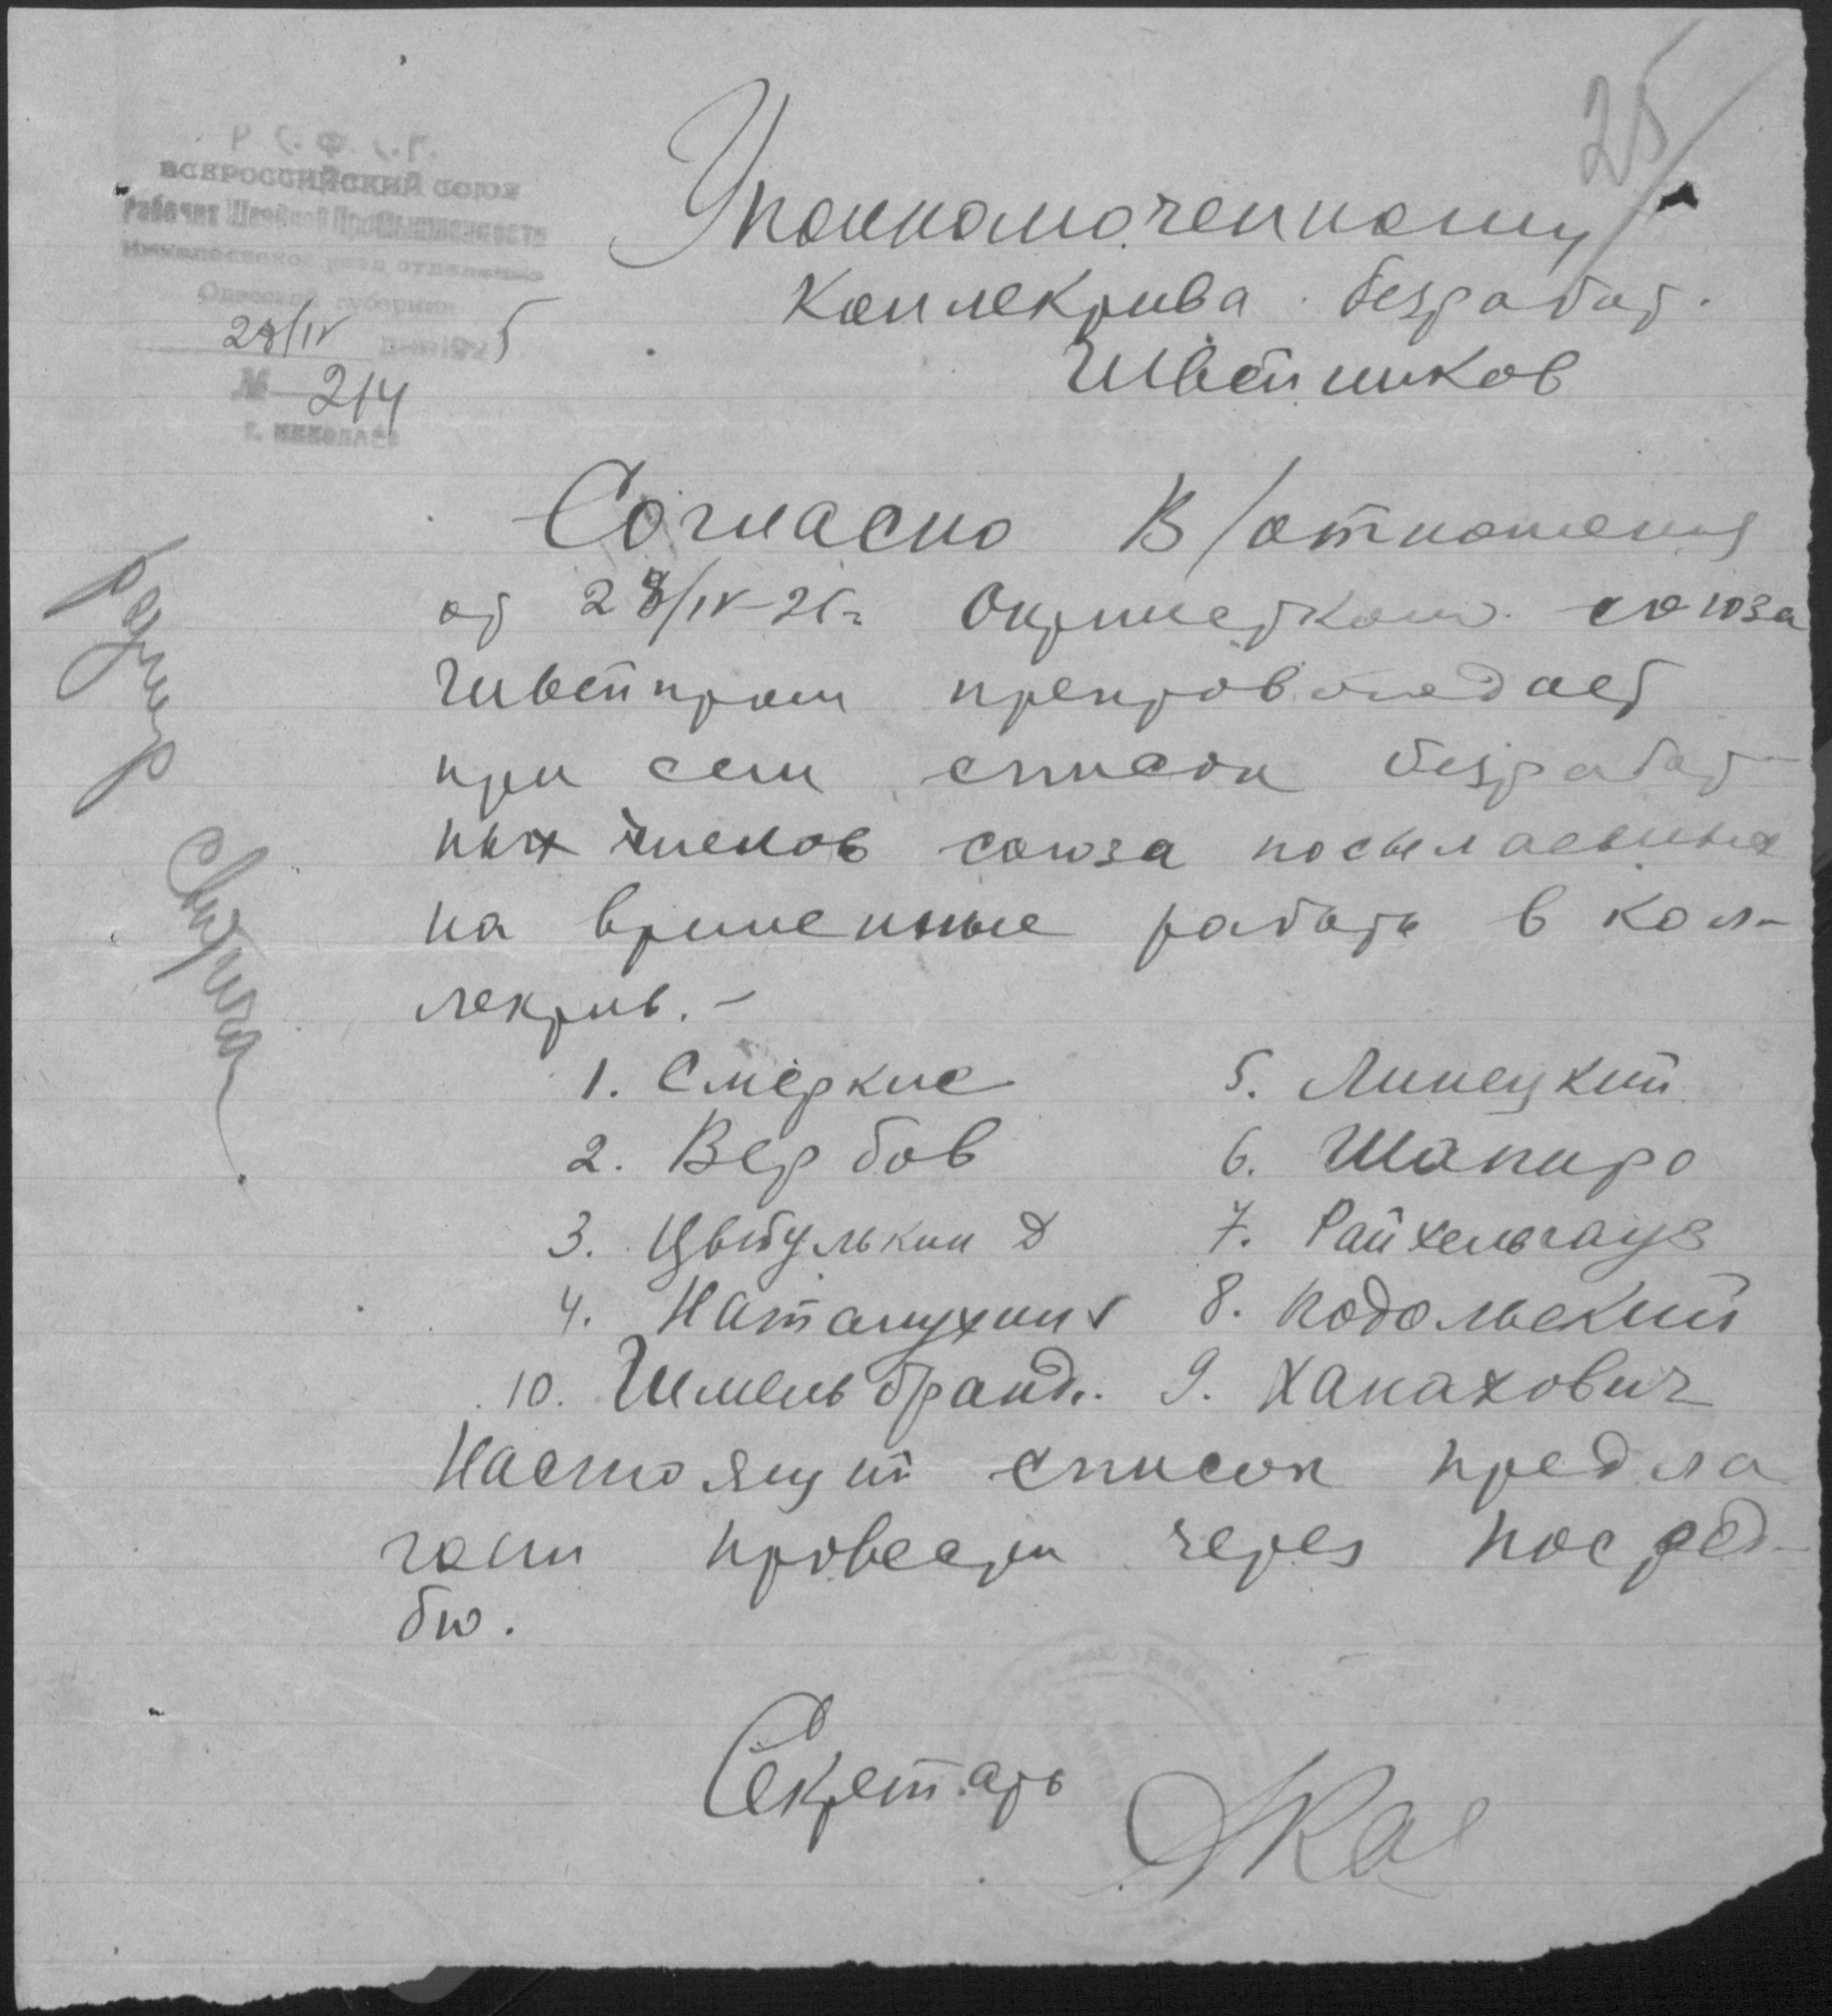 25
Р. С. Ф. С. Р.
ВСЕРОССИЙСКИЙ СОЮЗ
Рабочих Швейной Промышленности
Николаевское уезд отделение
Одесской губернии
28/IV 192 5
№ 214
г. НИКОЛАЕВ
Уполномоченному
Коллектива безработ.
Швейников
Согласно В/отношения
от 28/IV-25г. Окрместком союза
Швейпром препровождает
при сем список безработ-
ных членов союза посылаемых
на временные работы в кол-
лектив. -
1. Смеркис 5. Липецкий
2. Вербов 6. Шапиро
3. Цыбулькин Д 7. Райхельгауз
4. Наталухин 8. Подольский
10. Шмельбранд. 9. Ханахович
Настоящий список предла
гаем провести через посред-
бю.
Секретарь